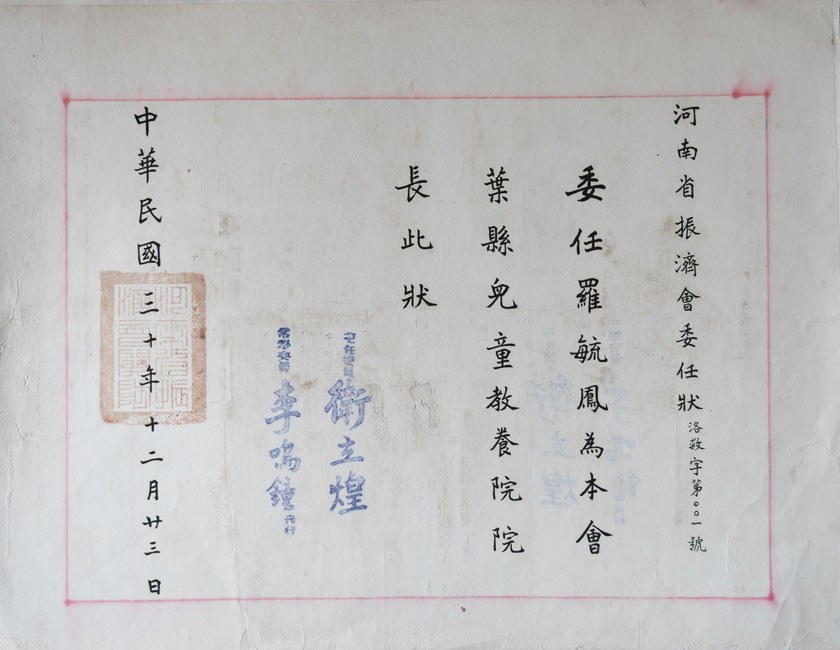 河南省振濟會委任狀洛救字第〇〇一號
委任羅毓鳳為本會
葉縣兒童教養院院
長此狀
主任委員衛立煌
常務委員李鳴鐘代行
中華民國三十年十二月廿三日